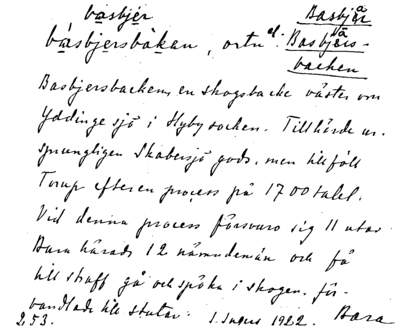 båsbjér Basbjär
båsbjersbákan, ortn el. Basbjers-
backen
Basbjersbacken, en skogsbacke väster om
Yddinge sjö i Hyby socken. Tillhörde ur-
sprungligen Skabersjö gods, men tillföll
Torup efter en process på 1700 talet.
Vid denna process försvuro sig 11 utav
Bara härads 12 nämndemän och få
till straff gå och spöka i skogen, för-
vandlade till stutar.
253. 1922. Bara